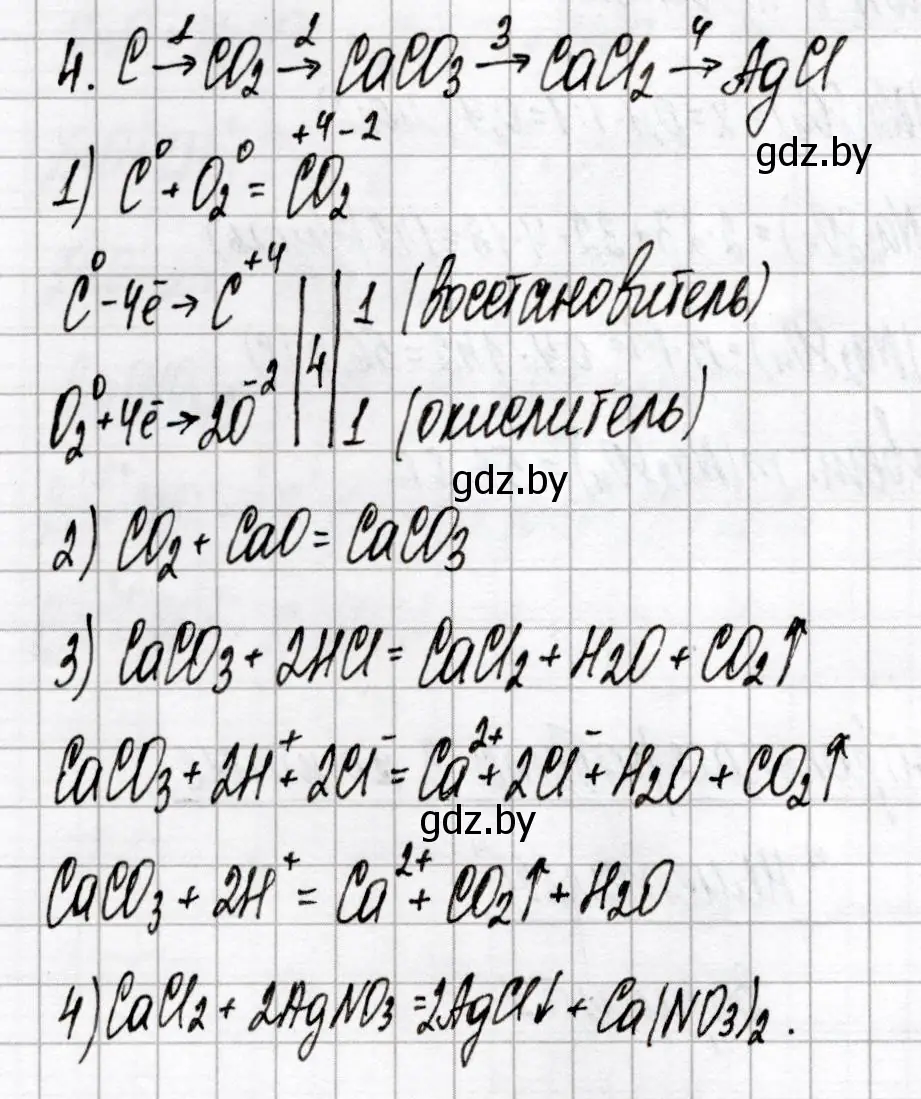 4. C →¹ CO₂ →² CaCO₃ →³ CaCl₂ →⁴ AgCl
gdz.by
1) C⁰ + O₂⁰ = C⁺⁴O₂⁻²
C⁰ - 4ē → C⁺⁴ | | 1 (восстановитель)
|4|
O₂⁰ + 4ē → 2O⁻² | | 1 (окислитель)
gdz.by
2) CO₂ + CaO = CaCO₃
3) CaCO₃ + 2HCl = CaCl₂ + H₂O + CO₂↑
CaCO₃ + 2H⁺ + 2Cl⁻ = Ca²⁺ + 2Cl⁻ + H₂O + CO₂↑
gdz.by
CaCO₃ + 2H⁺ = Ca²⁺ + CO₂↑ + H₂O
4) CaCl₂ + 2AgNO₃ = 2AgCl↓ + Ca(NO₃)₂.